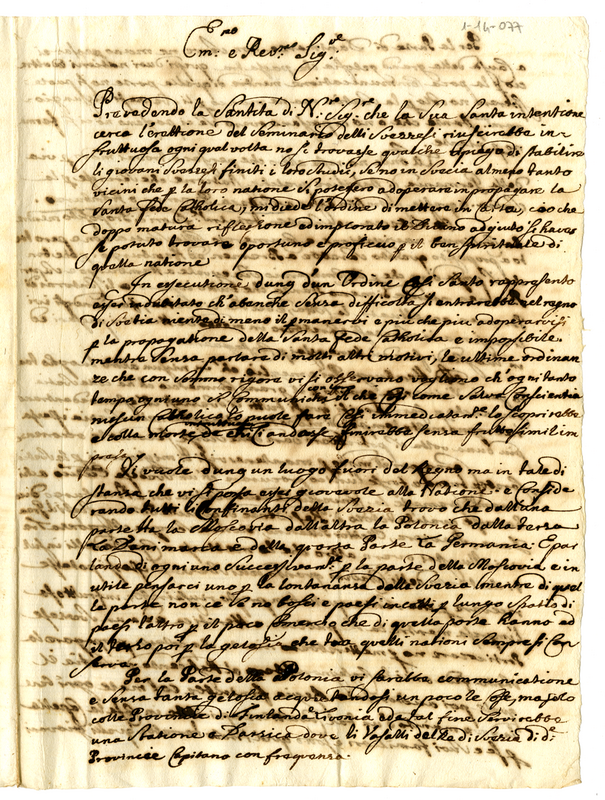 1-14-077
Em.mo e Rev.mo Sig.re
Prevedendo la Santità di N.ro Sig.re che la Sua Santa intentione
circa l'erettione del Seminario delli Svezzesi riuscirebbe in-
fruttuosa ogni qual volta no si trovasse qualche di stabilire
li giovani Svezzesi finiti i loro studii, se no in Svecia almeno tanto
vicini che p la loro natione si potessero adoperare in propagare la
Santa fede Catholica, mi diede l'ordine di mettere in carta, ciò che
doppo matura riflessione ed implorato il Divino adjuto
potuto trovare oportuno e proficuo p il ben spirituale di
quella natione
In essecutione dunq d'un Ordine così Santo rappresento
esser indubitato ch'abenche senza difficoltà si entrarebbe nel regno
di Svetia niente di meno il pmanervi e più che più adoperarvisi
p la propagatione della Santa fede Catholica è impossibile
mentre senza parlare di molti altri motivi, le ultime ordinan
ze che con sommo rigore vi si osservano vogliono ch'ogni tanto
tempo ogn'uno si communichi il che si come salva Conscientia
niscun Catholico lo puole fare così immediatam.te lo scoprirebbe
e colla morte di chi ci andasse finirebbe senza frutto simil im
presa
Si vuole dunq un luogo fuori del Regno ma in tale di
stanza che vi si possa esser giovevole alla Natione. e Conside
rando tutti li Confinanti della Svezia trovo che dall'una
parte sta la Moscovia dall'altra la Polonia dalla terza
La Danimarca e della quarta Parte La Germania: E par
lando di ogni uno Successivam.te p la parte della Moskovia e in
utile pensarci uno p la lontananza della Svezia mentre di quel
la parte non ce se no boschi e paesi incolti p lungo spatio di
paesi l'altro p il poco Comercio che di quella parte hanno ed
il terzo poi p la gelosia che tra quelli nationi sempre si con
serva.
Per la Parte della Polonia vi sarebbe communicatione
e senza tanta gelosia acquietandosi un poco le cose, ma solo
colle Provincie di Finlandia Livonia ed a tal fine servirebbe
una Statione a Darsica dove li Vasalli del Re di Svezia di d.e
Provincie capitano con frequenza.